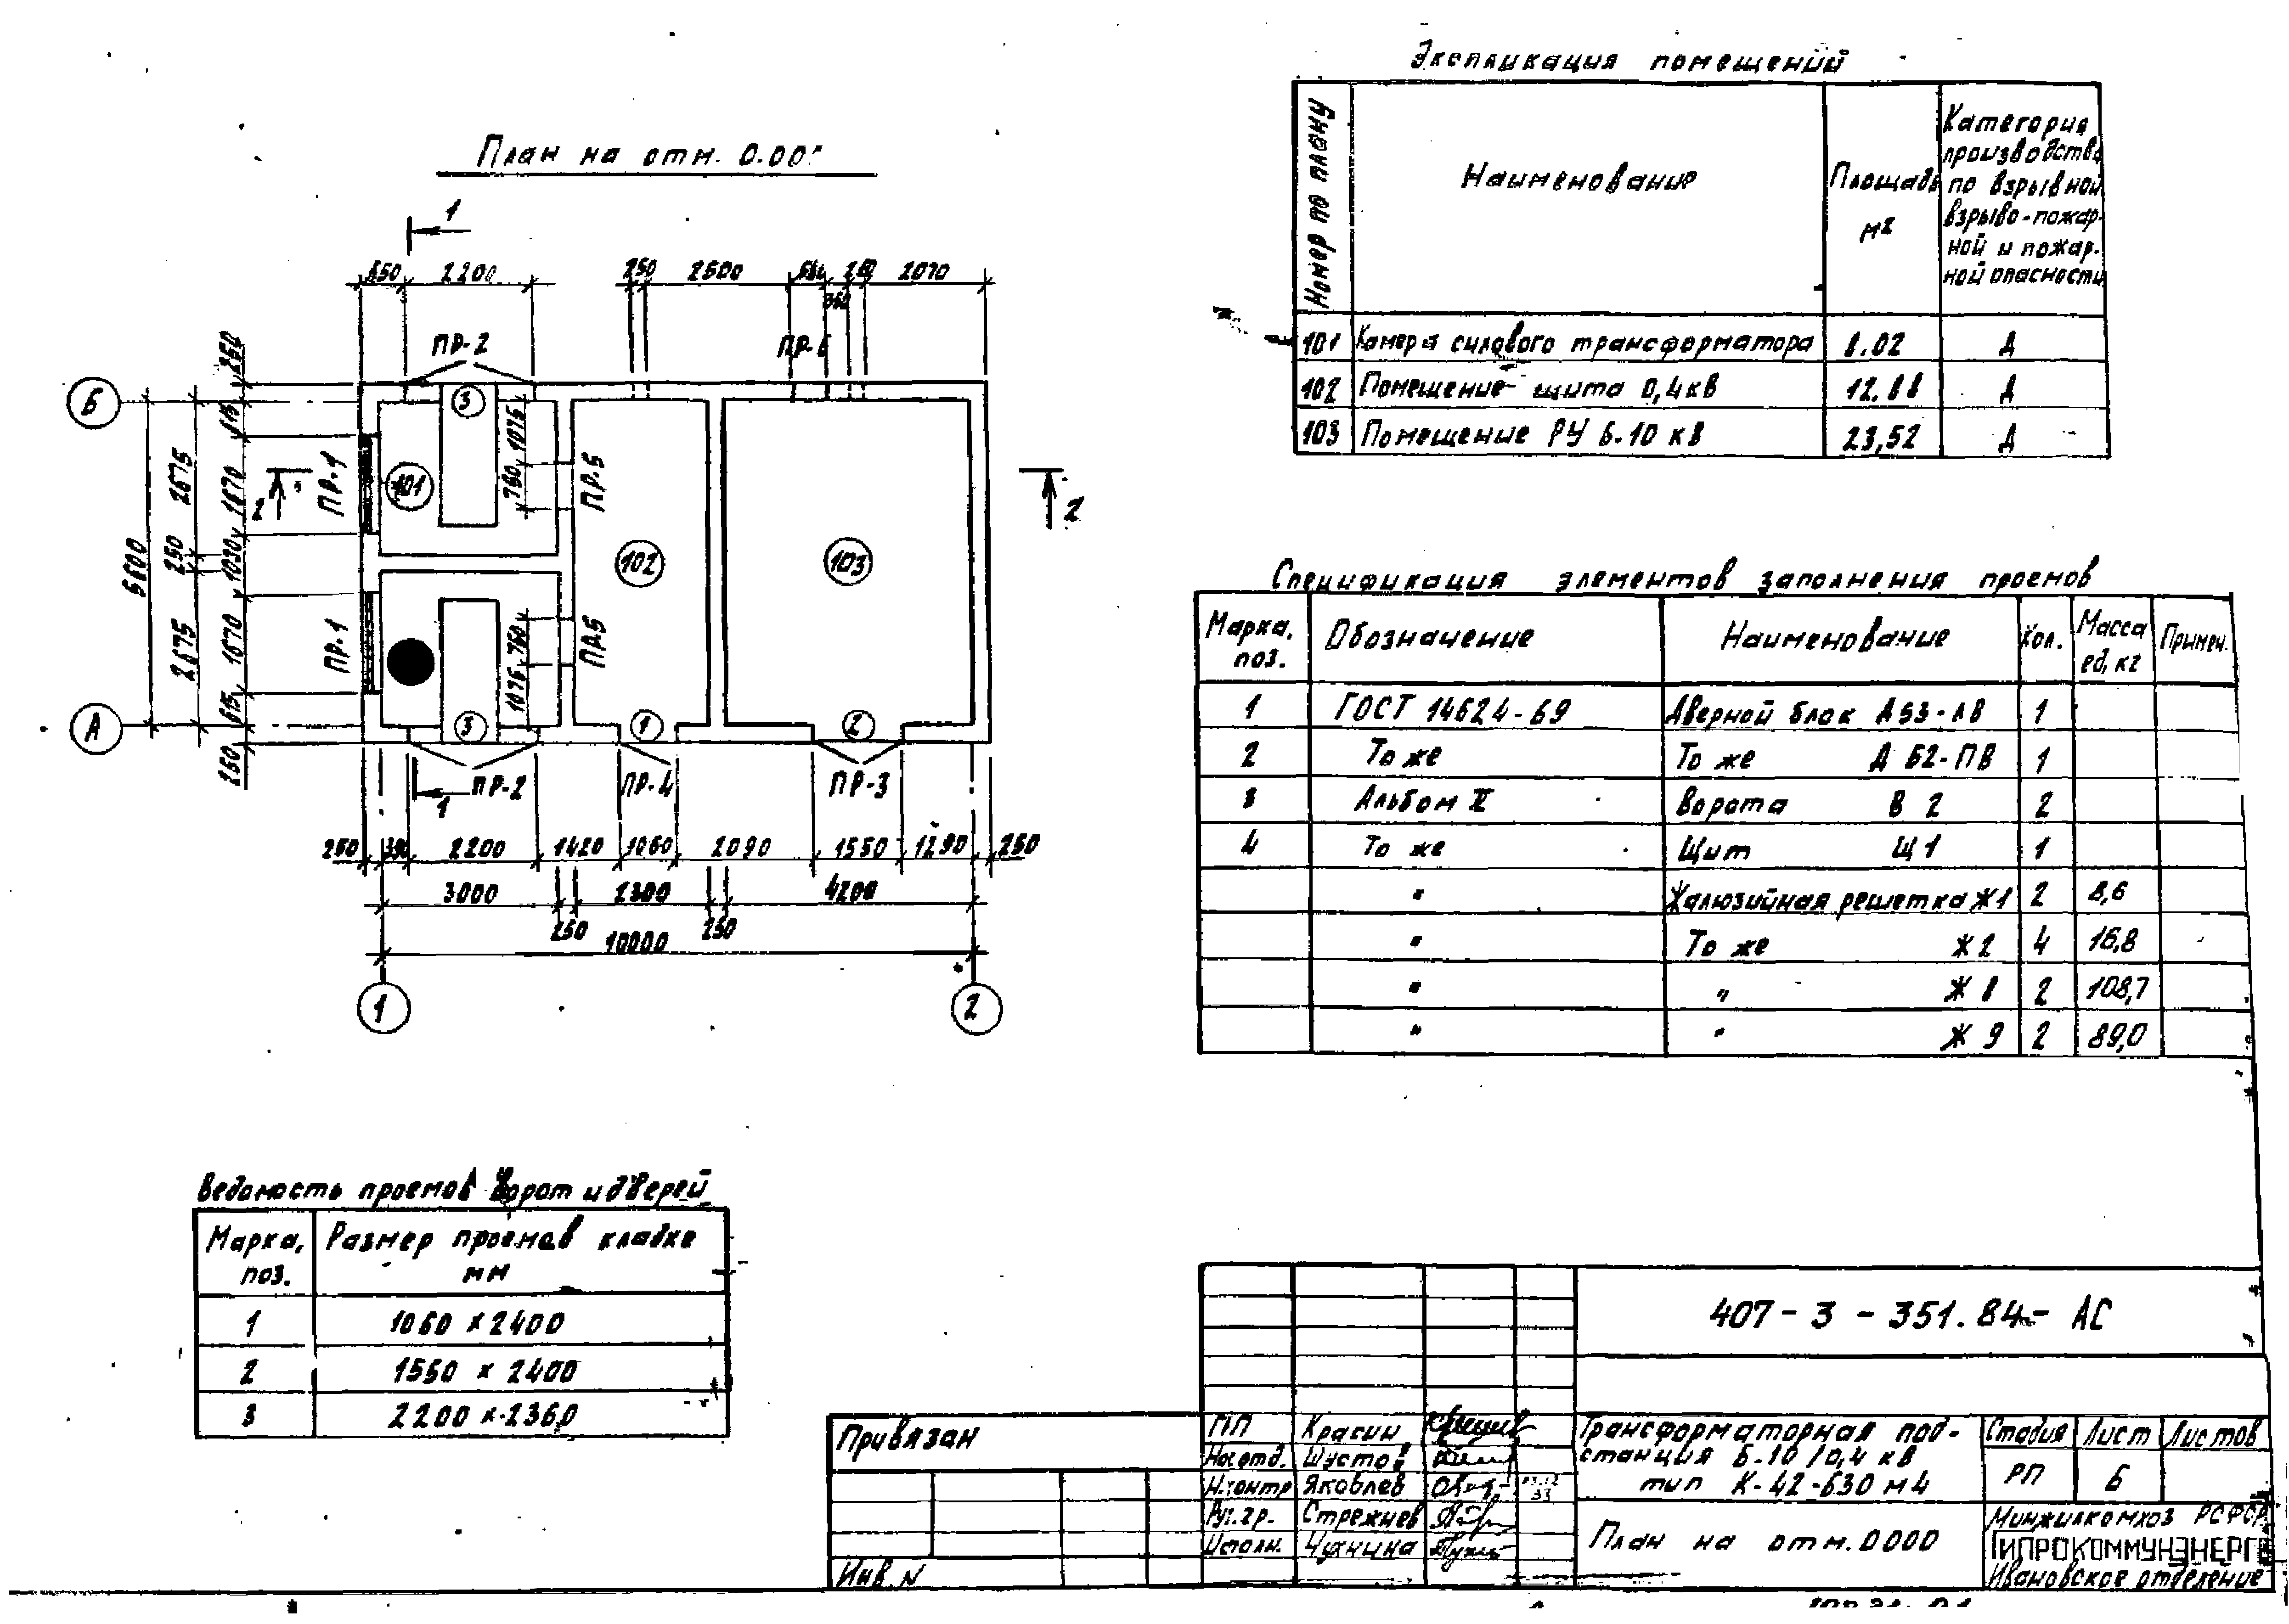 План на отм. 0.00
1
650 2200 250 2500 250 2070
ПР-2
Б
3
101
ПР-1
ПР-5
2
2
250
615
1670
1030
1670
615
250
2675
250
2675
5600
1075
760
102
103
ПР-1
ПР.5
760
1075
А
3
1
2
ПР-2
ПР-4
ПР-3
1
250 2200 1420 1060 2090 1550 1290 250
3000 2300 4200
250 250
10000
1
2
Экспликация помещений
Номер по плану
Наименование
Площадь м²
Категория
производства
по взрывной
взрыво-пожар-
ной и пожар-
ной опасности
101 Камера силового трансформатора 8.02 Д
102 Помещение щита 0,4кв 12.88 Д
103 Помещение РУ 6-10 кв 23,52 Д
Спецификация элементов заполнения проемов
Марка, поз. Обозначение Наименование Кол. Масса ед, кг Примеч.
1 ГОСТ 14624-69 Дверной блок Д53-ЛВ 1
2 То же То же Д 52-ПВ 1
3 Альбом II Ворота В 2 2
4 То же Щит Щ1 1
" Жалюзийная решетка Ж1 2 8,6
" То же Ж2 4 16,8
" " Ж 8 2 108,7
" " Ж 9 2 89,0
Ведомость проемов ворот и дверей
Марка, поз. Размер проемов кладке мм
1 1060 х 2400
2 1550 х 2400
3 2200 х 2360
407-3-351.84- АС
Привязан
Инв. N
ГИП Красин
Нач.отд. Шустов
Н.контр Яковлев
Рук.гр. Стрежнев
Исполн. Чухнина
Трансформаторная под-
станция 6-10/0,4 кв
тип К-42-630 м4
План на отм. 0000
Стадия Лист Листов
РП 6
Минжилкомхоз РСФСР
ГИПРОКОММУНЭНЕРГО
Ивановское отделение